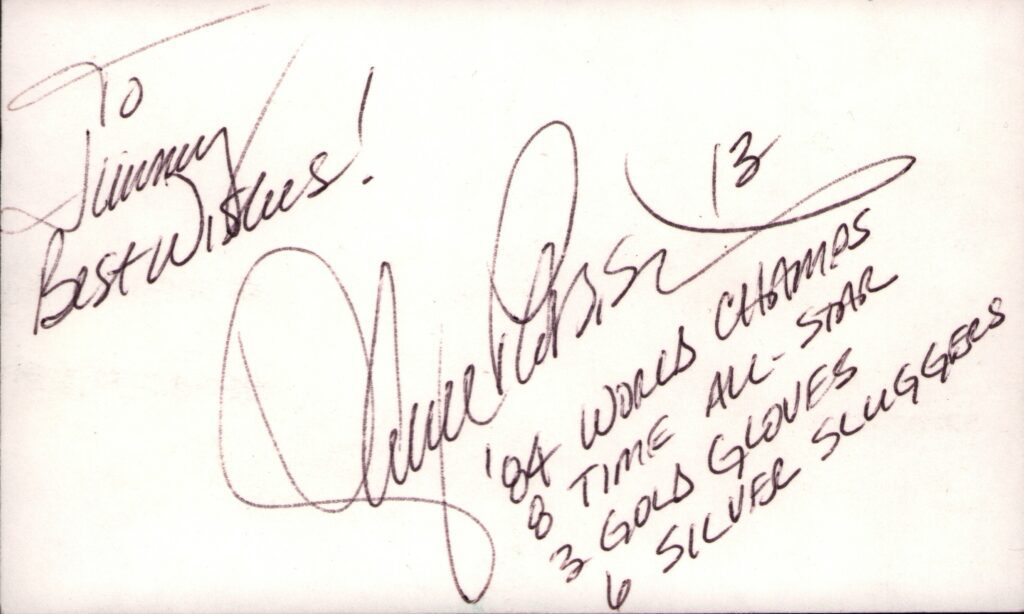 To
Jimmy
Best Wishes!
Lance Parrish 13
'84 WORLD CHAMPS
8 TIME ALL-STAR
3 GOLD GLOVES
6 SILVER SLUGGERS